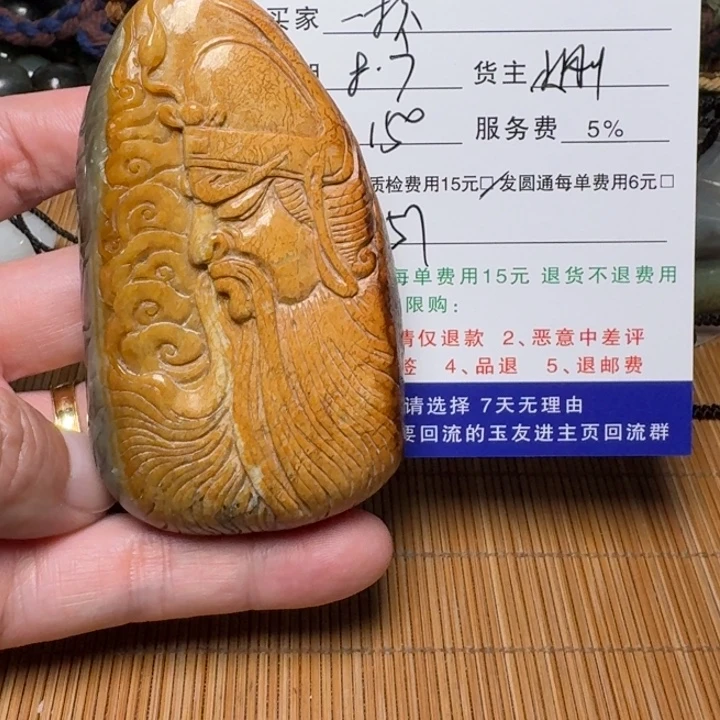 买家
8.7 货主
150 服务费 5%
质检费用15元□ 发圆通每单费用6元□
每单费用15元 退货不退费用
限购：
请仅退款 2、恶意中差评
签 4、品退 5、退邮费
请选择 7天无理由
要回流的玉友进主页回流群